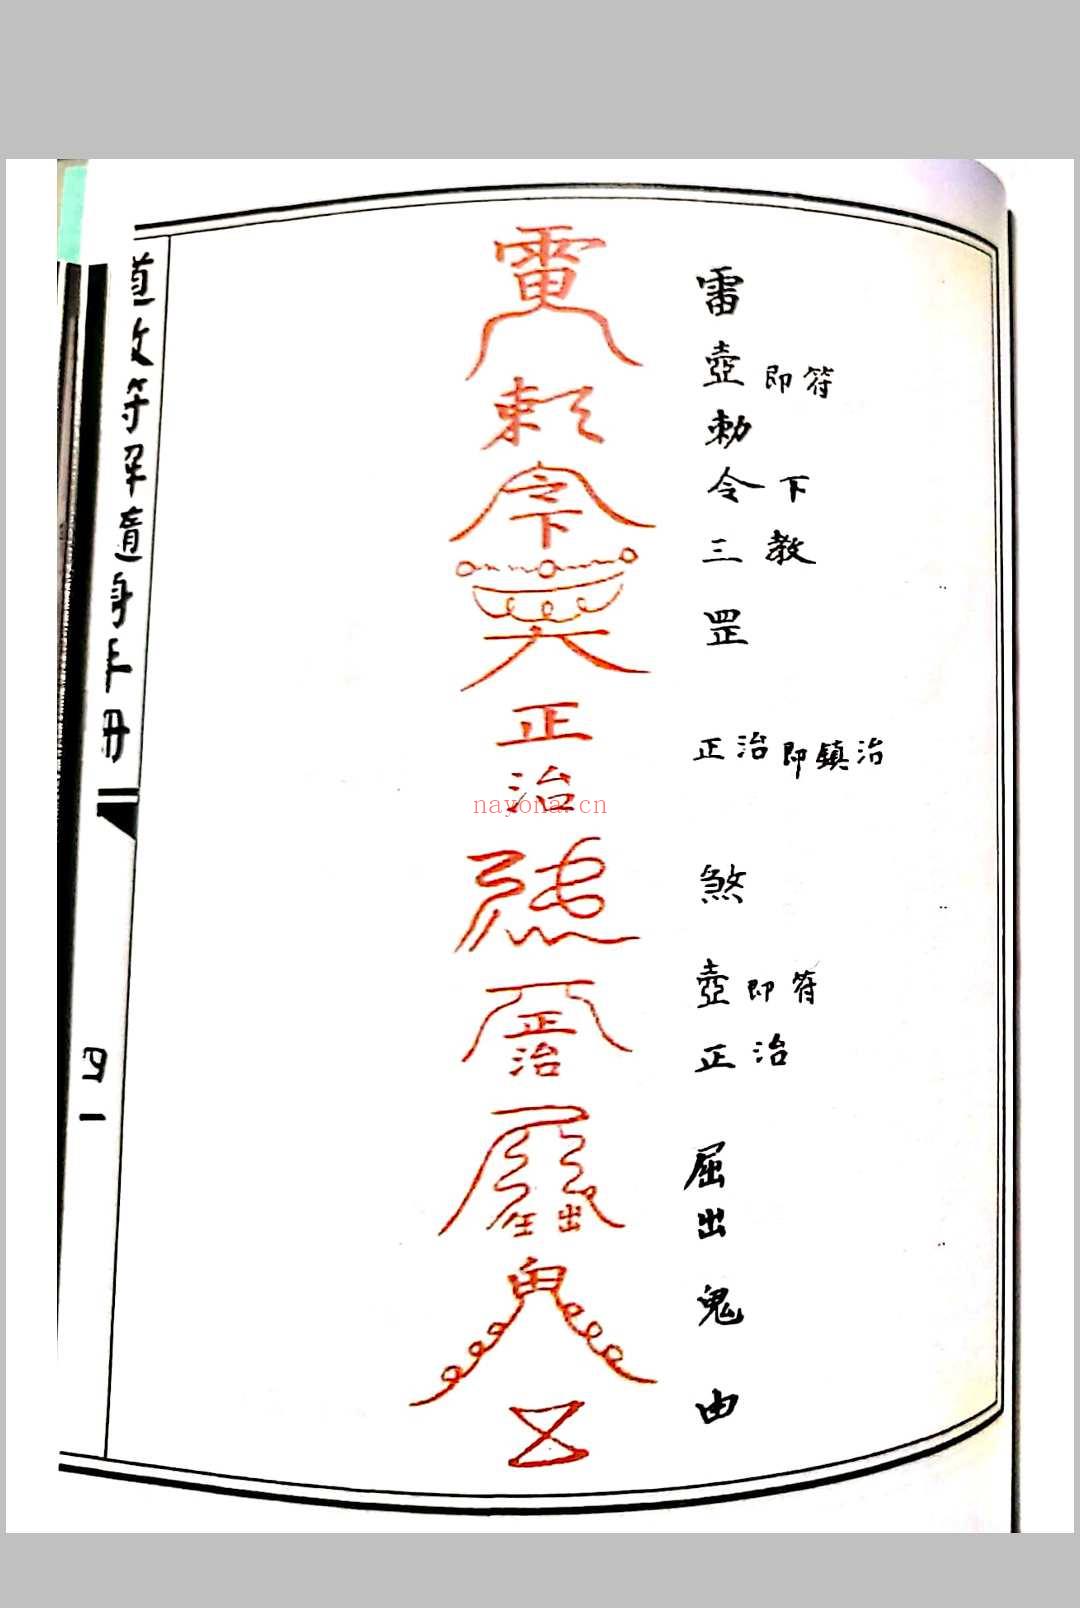 道教符罕隨身手册
四一
雷
勅
令
下
正
治
正
治
出
雷
壺 即符
勅
令下
三教
罡
正治即鎮治
煞
壺即符
正治
屈
出
鬼
由
nayona.cn